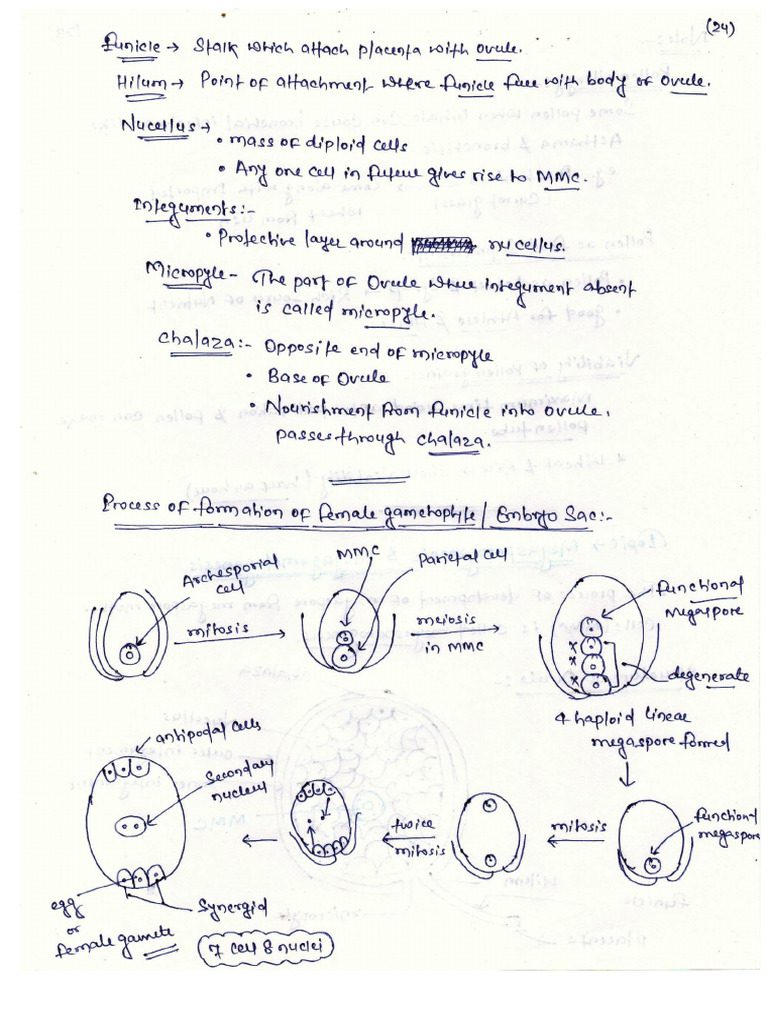 (24)
Funicle → Stalk which attach placenta with ovule.
Hilum → Point of attachment where funicle fuse with body of Ovule.
Nucellus →
• mass of diploid cells
• Any one cell in future gives rise to MMC.
Integuments:-
• Protective layer around nucellus.
Micropyle - The part of Ovule where integument absent
is called micropyle.
Chalaza:- Opposite end of micropyle
• Base of Ovule
• Nourishment from funicle into ovule,
passes through chalaza.
Process of formation of female gametophyte / Embryo Sac:-
Archesporial
cell
mitosis
MMC
Parietal cell
meiosis
in MMC
functional
megaspore
degenerate
4 haploid linear
megaspore formed
functional
megaspore
mitosis
twice
mitosis
antipodal cells
Secondary
nucleus
egg
or
female gamete
Synergid
7 cell 8 nuclei